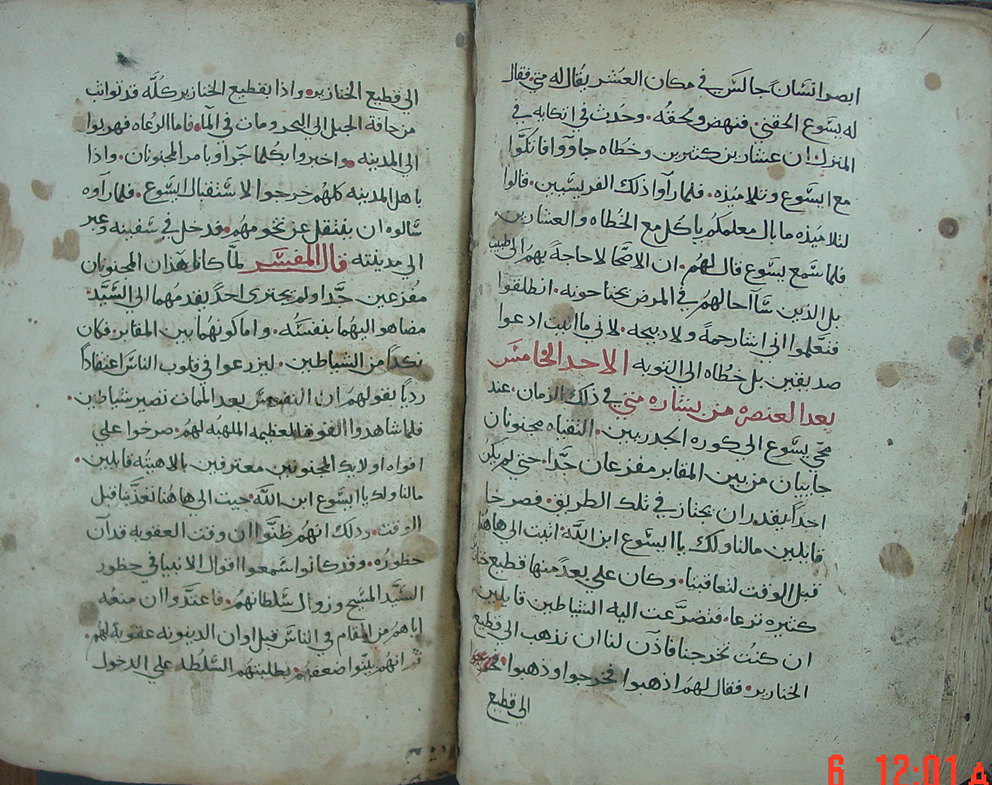 ابصر انسان جالس في مكان العشر يقال له متي فقال
له يسوع الحقني فنهض ولحقه. وحدث في اتكايه في
المنزل ان عشارين كثيرين وخطاه جاووا فاتكوا
مع ايسوع وتلاميذه. فلما راوا ذلك الفريسيين. قالوا
لتلاميذه ما بال معلمكم ياكل مع الخطاه والعشارين.
فلما سمع يسوع قال لهم. ان الاصحا لا حاجة بهم الي طبيب
بل الذين ساآ حالهم في المرض يحتاجونه. انطلقوا
فتعلموا اني اشا رحمة ولا ديحه. لاني ما اتيت ادعوا
صديقين بل خطاه الي التوبه الاحد الخامس
بعد العنصره من بشاره متي في ذلك الزمان. عند
مجي يسوع الي كورة الجدريين. التقياه مجنونان
جاييان من بين المقابر مفزعان جدا. حتي لم يكن
احدا يقدر ان يجتاز في تلك الطريق. فصرخا
قايلين ما لنا ولك يا ايسوع ابن الله. اتيت الي هاهنا
قبل الوقت لتعاقبنا. وكان علي بعد منها قطيع خنازير
كثيره ترعا. فتضرعت اليه الشياطين قايلين
ان كنت تخرجنا فاذن لنا ان نذهب الي قطيع
الخنازير. فقال لهم اذهبوا فخرجوا وذهبوا
الي قطيع
الي قطيع الخنازير. واذا بقطيع الخنازير كله قد تواثب
من حافة الجبل الي البحر ومات في الما. فاما الرعاه فهربوا
الي المدينه. واخبروا بكلما جرا وبامر المجنونان. واذا
باهل المدينه كلهم خرجوا لاستقبال ايسوع. فلما راوه
سالوه ان ينتقل عن تخومهم. فدخل في سفينه وعبر
الي مدينته قال المفسر لما كانا هذان المجنونان
مفزعين جدا ولم يجتري احد يقدمهما الي السيد.
مضا هو اليهما بنفسه. واما كونهما بين المقابر. فكان
نكدا من الشياطين. ليزرعوا في قلوب الناس اعتقادا
رديا بقولهم ان النفس بعد الممات تصير شياطين.
فلما شاهدوا القوه العظيمه الملهبه لهم. صرخوا علي
افواه اولايك المجنونين معترفين بالاهيته قايلين.
ما لنا ولك يا ايسوع ابن الله. جيت الي هاهنا تعذبنا قبل
الوقت. وذلك انهم ظنوا ان وقت العقوبه قد آن
حظوره. وقد كانوا سمعوا اقوال الانبيا في حظور
السيد المسيح وزوال سلطانهم. فاعتدوا ان منعه
اياهم من المقام في الناس قبل اوان الدينونه عقوبة لهم.
ثم انهم بينوا ضعفهم. بطلبتهم السلطه علي الدخول
6 12:01 A